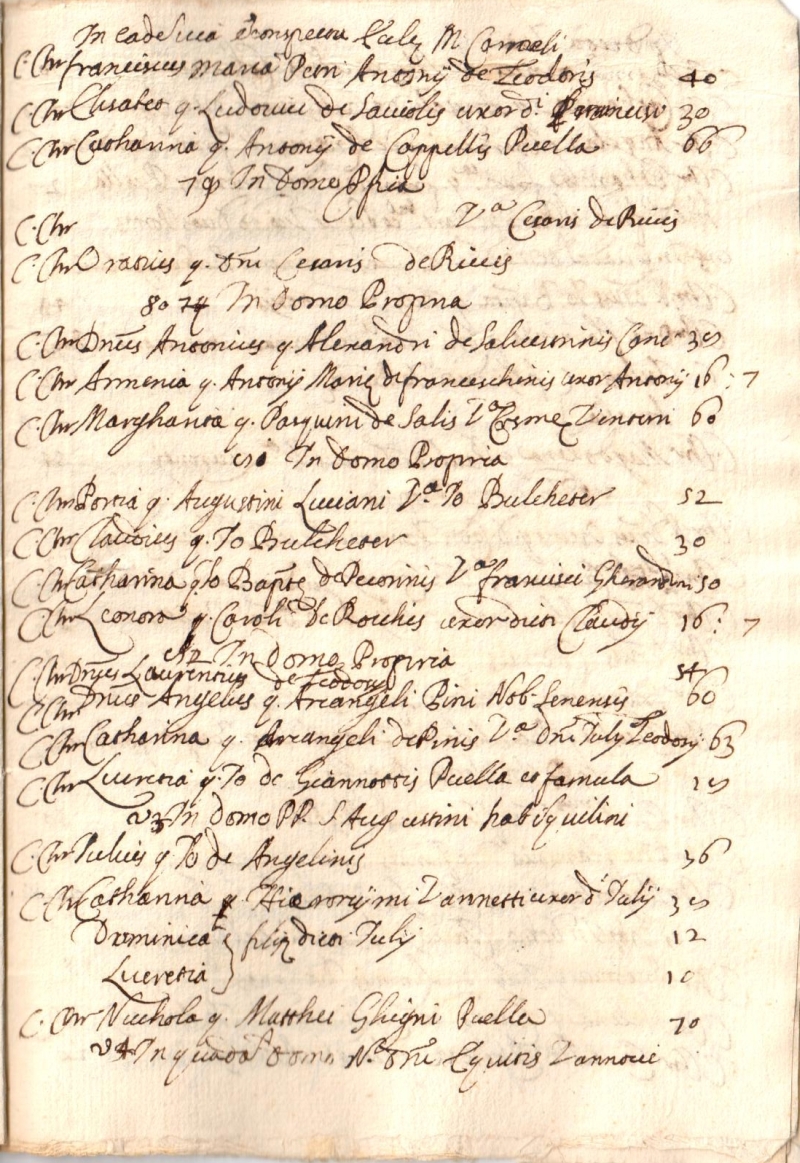 In eade Via è conspectu Eccle M Carmeli
C. Chr Franciscus Maria Petri Antonij de Teodoris 40
C. Chr Elisabet q. Ludovici de Saviolis uxor di. Francisci 30
C. Chr Catharina q. Antonij de Cappellis Puella 66
79 In Domo Ppria
C. Chr Va Cesaris de Riccis
C. Chr Oratius q. Dni Cesaris de Riccis
80 79 In Domo Propria
C. Chr Dnus Antonius q. Alexandri de Salvestrinis Canc
C. Chr Armenia q. Antonij Marie de Franceschinis uxor Antonij 16: 7
C. Chr Margharita q. Pasquini de Salis Va Cosme Venturi 60
In Domo Propria
C. Chr Portia q. Augustini Luciani Va. Io Bulcheter 52
C. Chr Claudius q. Io Bulcheter 30
C. Chr Catharina q. Io Bapte de Pecorinis Va Francisci Gherardini 50
C. Chr Leonora q. Caroli de Rocchis uxor dicti Claudij 16: 7
82 In Domo Propria
C. Chr Dnus Laurentius de Teodoris 54
C. Chr Dnus Angelus q. Arcangeli Pini Nob. Senensis 60
C. Chr Catharina q. Arcangeli de Pinis Va Dni Julij Teodorij 63
C. Chr Lucretia q. Io de Giannottis Puella et famula
In Domo PP. S Augustini hab Squilini
C. Chr Julius q Io de Angelinis 36
C. Chr Catharina q Hieronymi Vannetti uxor di Julij
Dominica } filie dicti Julij 12
Lucretia } 10
C. Chr Nicchola q. Matthei Ghigni Puella 70
In quada Domo N. Dni Equitis Vannocci